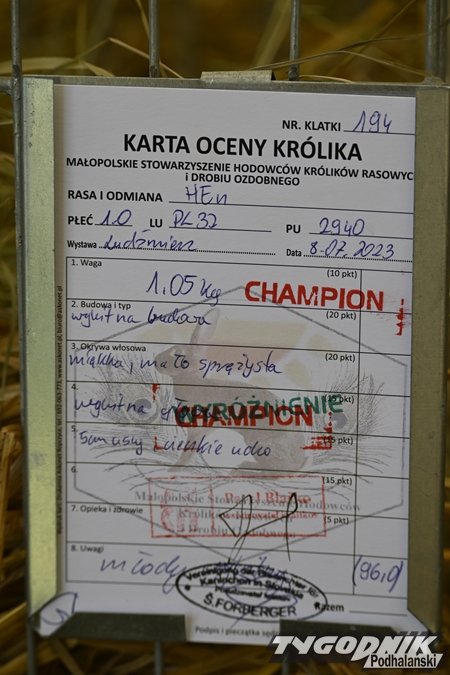 NR. KLATKI 194
KARTA OCENY KRÓLIKA
MAŁOPOLSKIE STOWARZYSZENIE HODOWCÓW KRÓLIKÓW RASOWYC
I DROBIU OZDOBNEGO
RASA I ODMIANA HEn
PŁEĆ 1.0 LU PL32 PU 2940
Wystawa Ludźmierz Data 8.07.2023
1. Waga (10 pkt)
1.05 kg
CHAMPION
2. Budowa i typ (20 pkt)
wybitna budowa
3. Okrywa włosowa (20 pkt)
miękka, mało sprężysta
4. (15 pkt)
wybitna głowa
WYRÓŻNIENIE
CHAMPION
5. (15 pkt)
5cm uszy
6. (15 pkt)
Małopolskie Hodowców
Królików
i Drobiu
7. Opieka i zdrowie (5 pkt)
8. Uwagi
młody 96,0
Kaninchen in
S. FORBERGER
Razem
Podpis i pieczątka
TYGODNIK
Podhalański